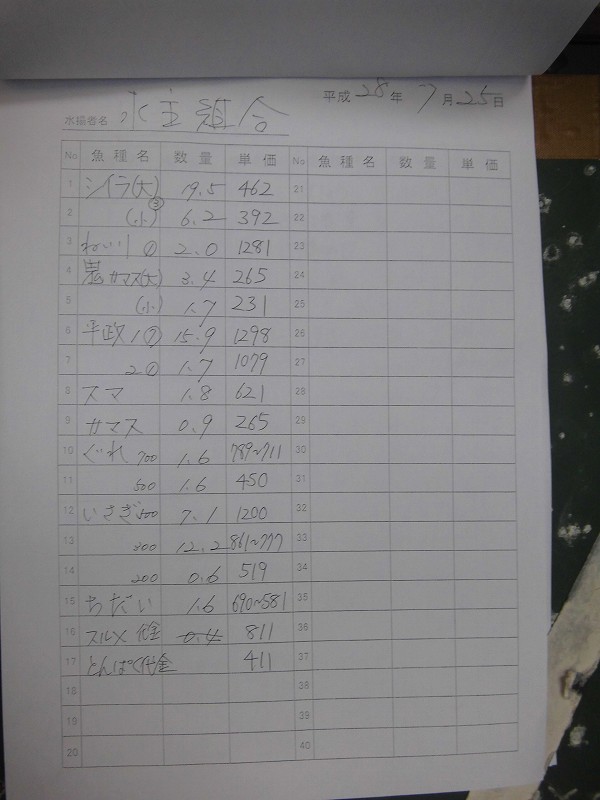 平成 28 年 7 月 25 日
水揚者名 水主組合
No 魚種名 数量 単価 No 魚種名 数量 単価
1 シイラ(大) 19.5 462 21
2 (小)③ 6.2 392 22
3 ① 2.0 1281 23
4 カマス(大) 3.4 265 24
5 (小) 1.7 231 25
6 平政1⑦ 15.9 1298 26
7 2① 1.7 1079 27
8 スマ 1.8 621 28
9 カマス 0.9 265 29
10 ぐれ 700 1.6 789~711 30
11 500 1.6 450 31
12 いさぎ 500 7.1 1200 32
13 300 12.2 861~777 33
14 200 0.6 519 34
15 ちだい 1.6 690~581 35
16 スルメ 代金 0.4 811 36
17 とんぱく代金 411 37
18 38
19 39
20 40